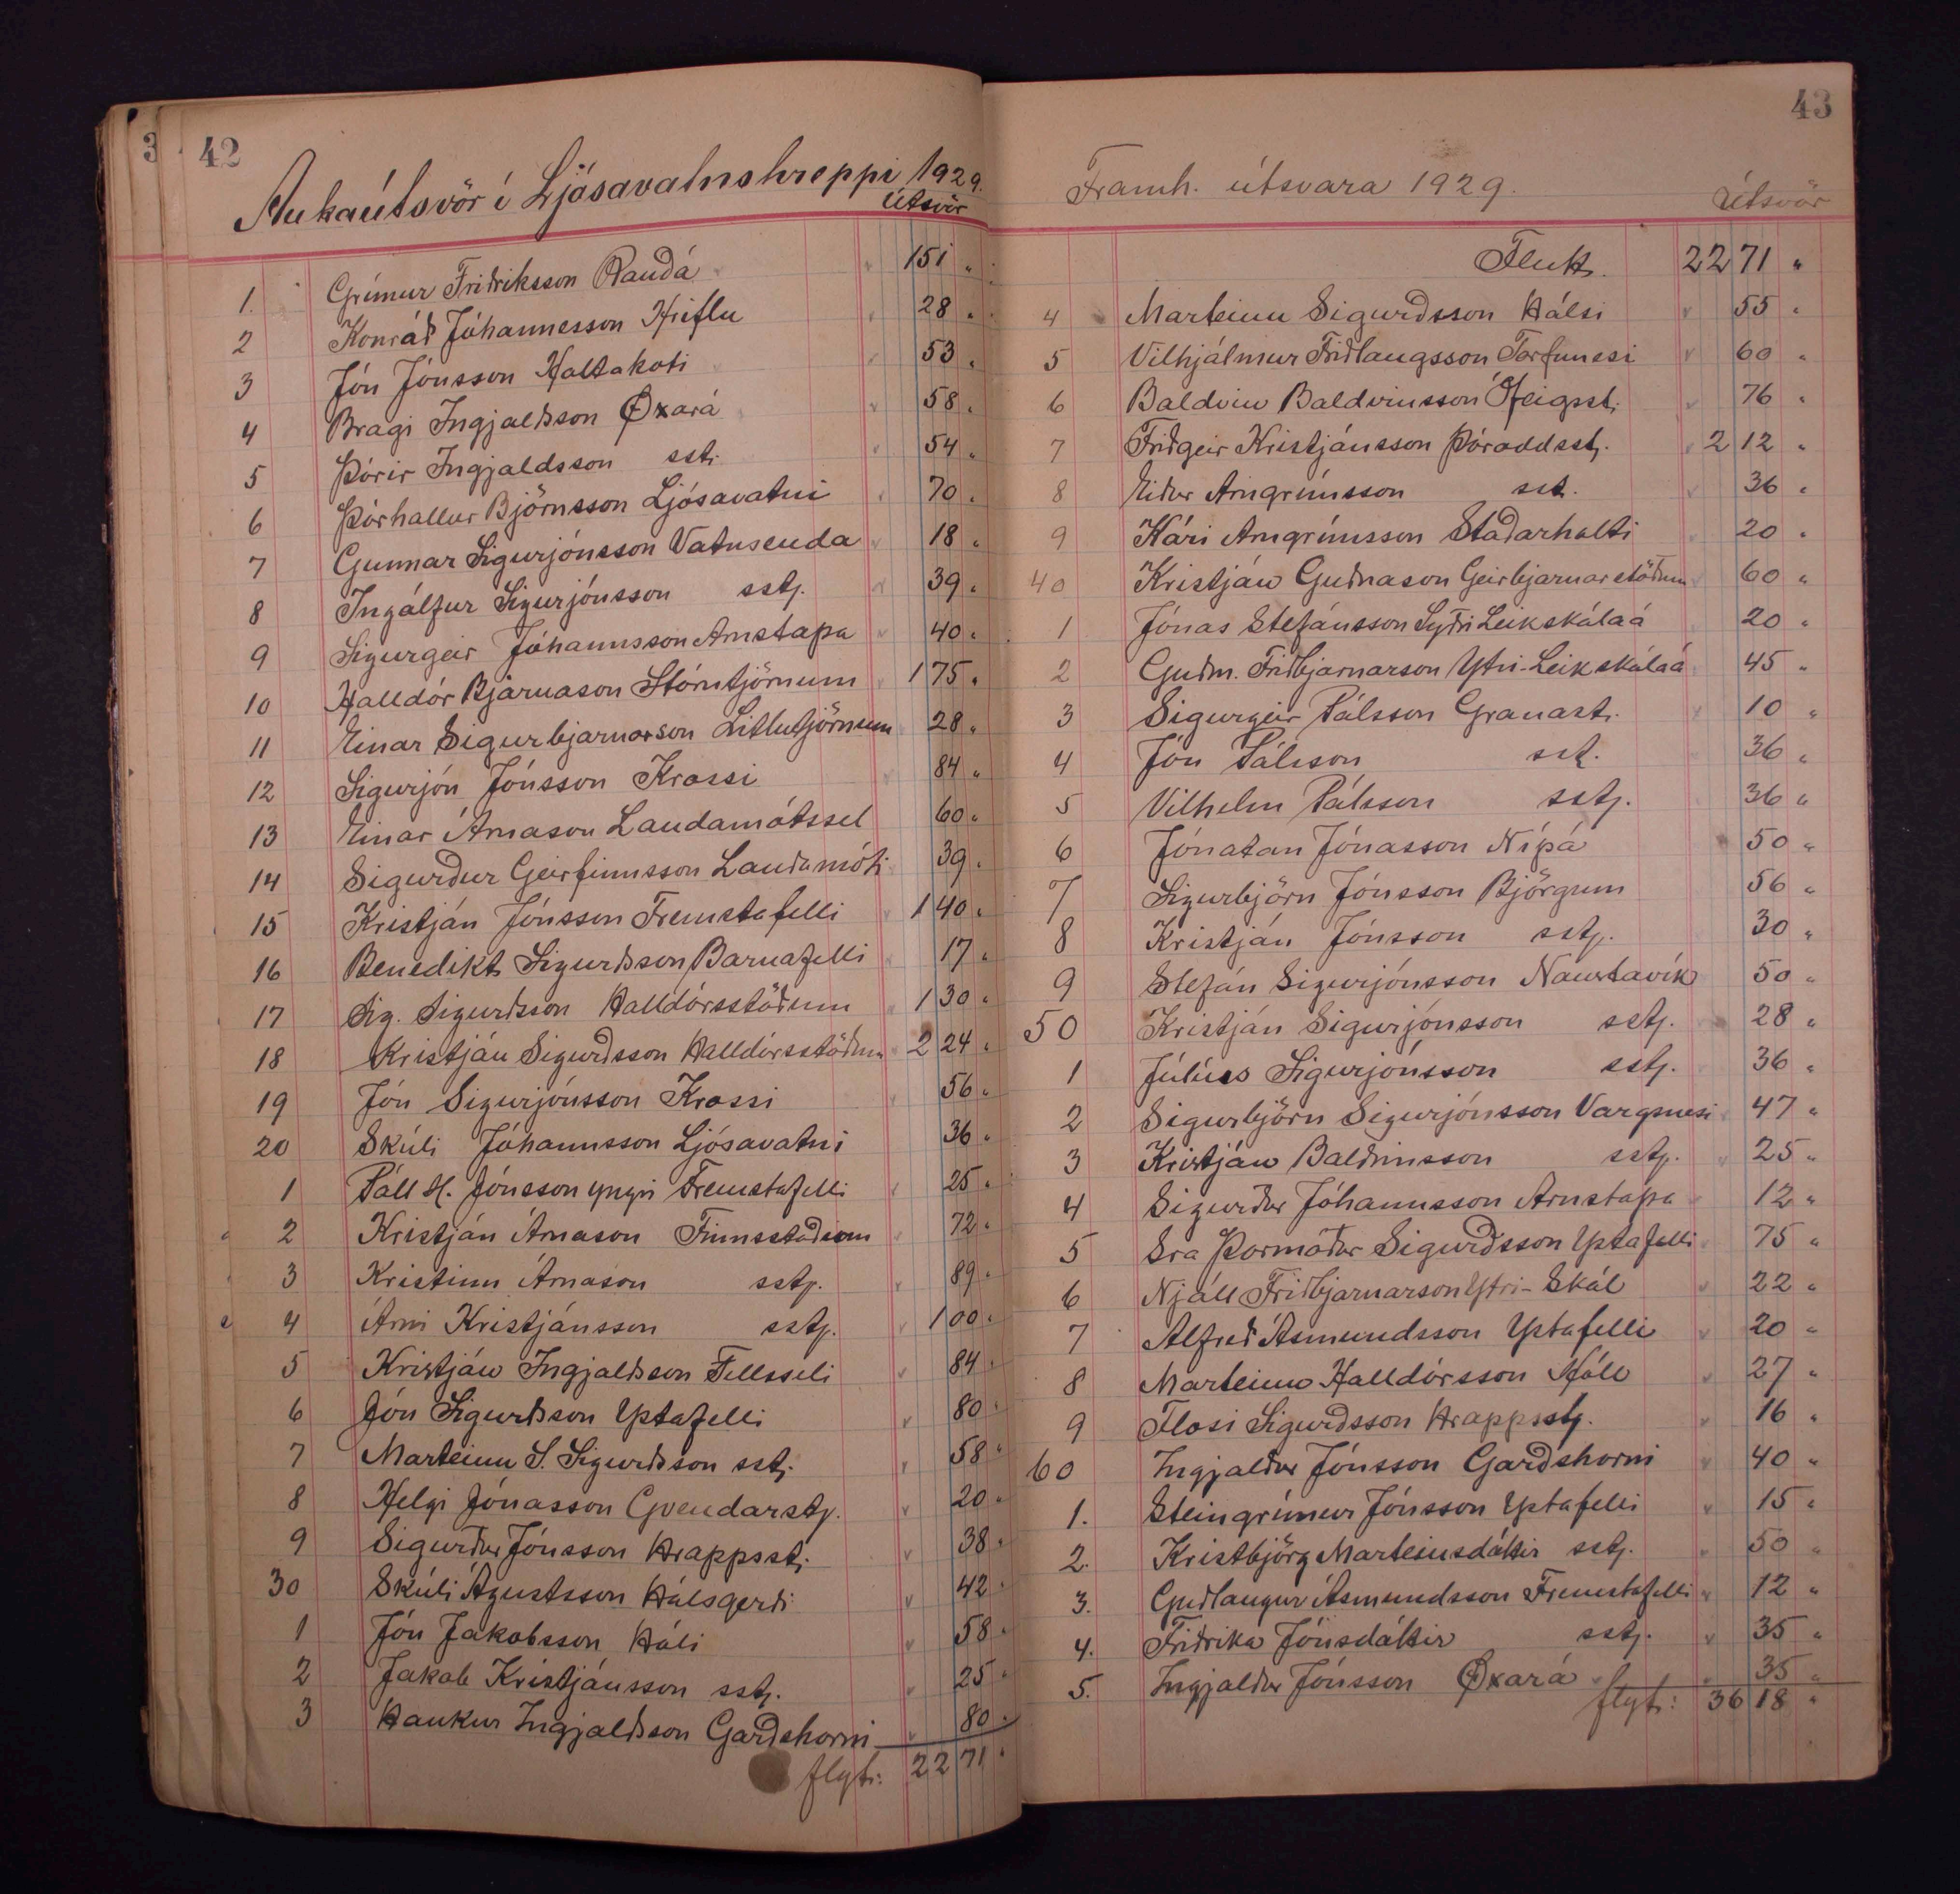 3
42
Aukaútsvör í Ljósavatnshreppi 1929.
Útsvör
1. Grímur Friðriksson Rauðá 151 "
2 Konráð Jóhannesson Hriflu 28 "
3 Jón Jónsson Holtakoti 53 "
4 Bragi Ingjaldsson Öxará 58 "
5 Þórir Ingjaldsson sst. 54 "
6 Þórhallur Björnsson Ljósavatni 70 "
7 Gunnar Sigurjónsson Vatnsenda 18 "
8 Ingólfur Sigurjónsson sstþ. 39 "
9 Sigurgeir Jóhannsson Arnstapa 40 "
10 Halldór Bjarnason Stórutjörnum 175 "
11 Einar Sigurbjarnarson Litlutjörnum 28 "
12 Sigurjón Jónsson Krossi 84 "
13 Einar Árnason Landamótssel 60 "
14 Sigurður Geirfinnsson Landamóti 39 "
15 Kristján Jónsson Fremstafelli 140 "
16 Benedikt Sigurðsson Barnafelli 17 "
17 Sig. Sigurðsson Halldórsstöðum 130 "
18 Kristján Sigurðsson Halldórsstöðum 224 "
19 Jón Sigurjónsson Krossi 56 "
20 Skúli Jóhannsson Ljósavatni 36 "
1 Páll H. Jónsson yngri Fremstafelli 25 "
2 Kristján Árnason Finnsstöðum 72 "
3 Kristinn Árnason sstþ. 89 "
4 Árni Kristjánsson sstþ. 100 "
5 Kristján Ingjaldsson Fellsseli 84 "
6 Jón Sigurðsson Yptafelli 80 "
7 Marteinn S. Sigurðsson sstþ. 58 "
8 Helgi Jónasson Gvendarstþ. 20 "
9 Sigurður Jónsson Hrappsstþ. 38 "
30 Skúli Ágústsson Hálsgerði 42 "
1 Jón Jakobsson Hóli 58 "
2 Jakob Kristjánsson sstþ. 25 "
3 Haukur Ingjaldsson Garðshorni 80 "
flyt: 2271 "
43
Framh. útsvara 1929.
Útsvör
Flutt. 2271 "
4 Marteinn Sigurðsson Hálsi 55 "
5 Vilhjálmur Friðlaugsson Torfunesi 60 "
6 Baldvin Baldvinsson Ófeigsst. 76 "
7 Friðgeir Kristjánsson Þóroddsstþ. 212 "
8 Eiður Arngrímsson sst. 36 "
9 Kári Arngrímsson Staðarholti 20 "
40 Kristján Guðnason Geirbjarnarstöðum 60 "
1 Jónas Stefánsson Syðri Leikskálaá 20 "
2 Guðm. Friðbjarnarson Ytri-Leikskálaá 45 "
3 Sigurgeir Pálsson Granast. 10 "
4 Jón Pálsson sst. 36 "
5 Vilhelm Pálsson sstþ. 36 "
6 Jónatan Jónasson Nípá 50 "
7 Sigurbjörn Jónsson Björgum 56 "
8 Kristján Jónsson sstþ. 30 "
9 Stefán Sigurjónsson Naustavík 50 "
50 Kristján Sigurjónsson sstþ. 28 "
1 Júlíus Sigurjónsson sstþ. 36 "
2 Sigurbjörn Sigurjónsson Vargsnesi 47 "
3 Kristján Baldvinsson sstþ. 25 "
4 Sigurður Jóhannsson Arnstapa 12 "
5 Sra Þormóður Sigurðsson Yptafelli 75 "
6 Njáll Friðbjarnarson Ytri-Skál 22 "
7 Alfreð Ásmundsson Yptafelli 20 "
8 Marteinn Halldórsson Hóll 27 "
9 Flosi Sigurðsson Hrappsstþ. 16 "
60 Ingjaldur Jónsson Garðshorni 40 "
1. Steingrímur Jónsson Yptafelli 15 "
2. Kristbjörg Marteinsdóttir sstþ. 50 "
3. Guðlaugur Ásmundsson Fremstafelli 12 "
4. Friðrika Jónsdóttir sstþ. 35 "
5. Ingjaldur Jónsson Öxará 35 "
flyt: 3618 "